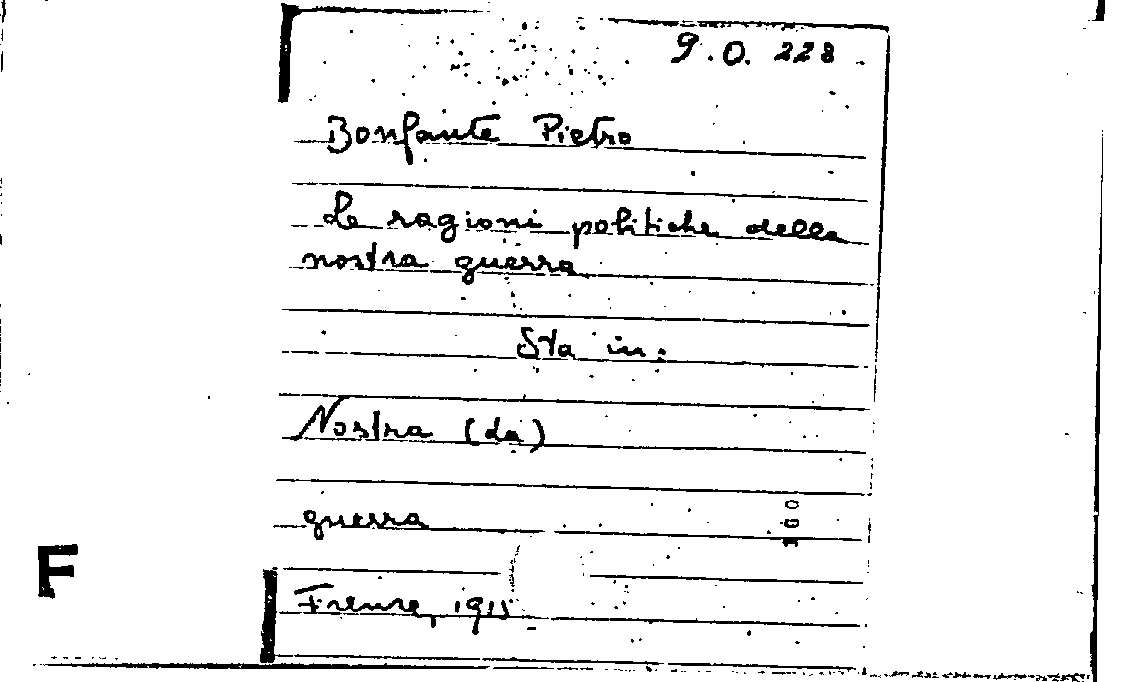 9.O. 228.
Bonfante Pietro
Le ragioni politiche della
nostra guerra
Sta in:
Nostra (La)
guerra
Firenze, 1915
F